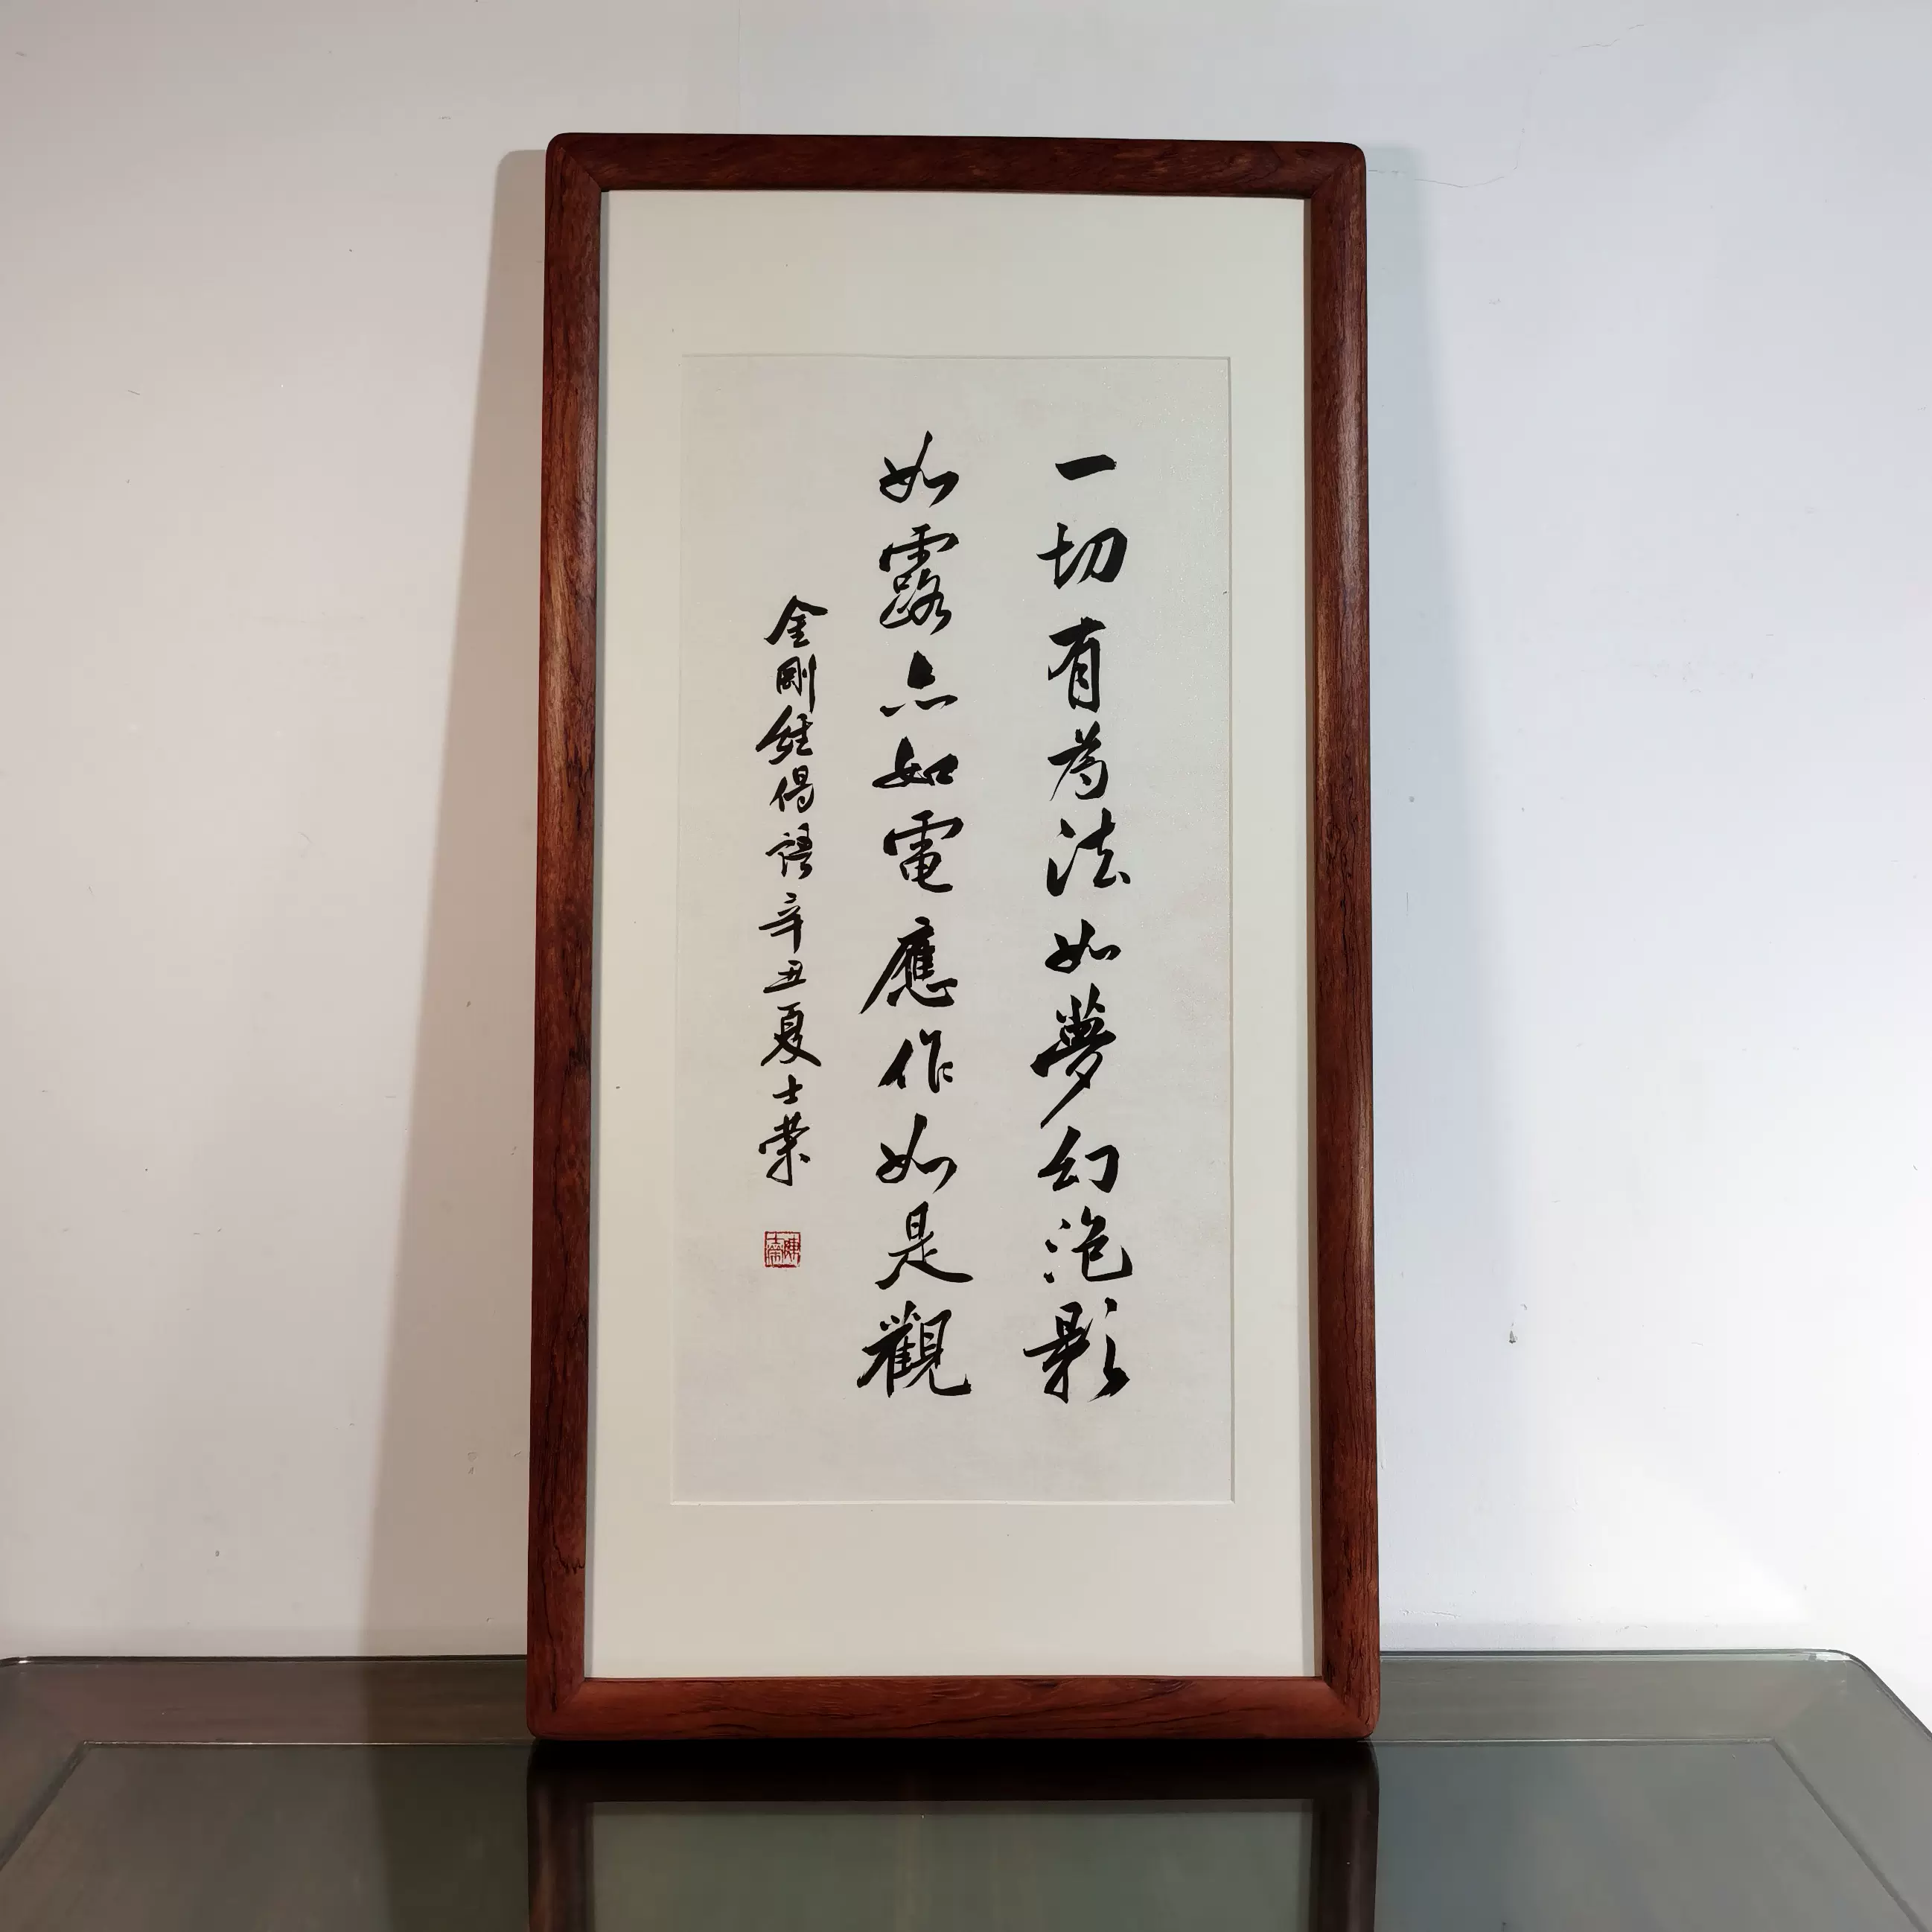 一切有為法如夢幻泡影
如露亦如電應作如是觀
金剛經偈語辛丑夏士榮
陳士榮